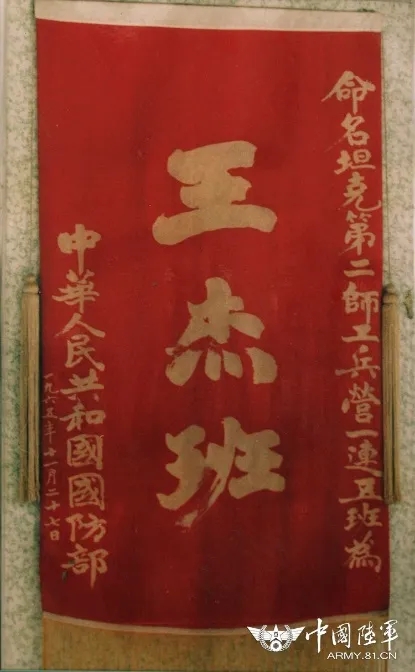 命名坦克第二師工兵營一連五班為
王杰班
中華人民共和國國防部
一九六五年十一月二十七日
中國陸軍
ARMY.81.CN